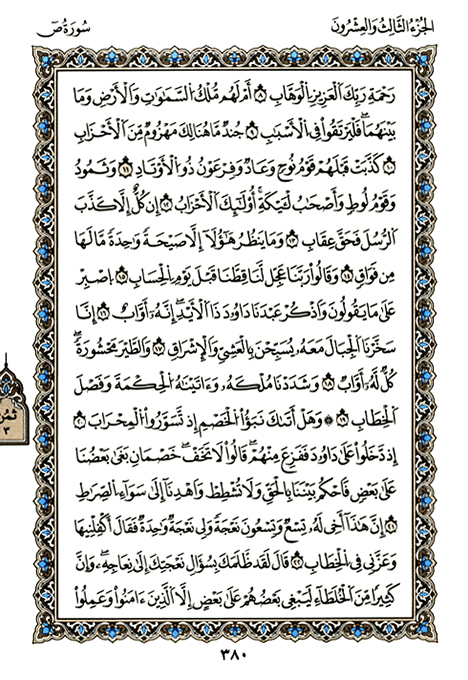 الجزء الثالث والعشرون
سورة ص
رَحْمَةِ رَبِّكَ الْعَزِيزِ الْوَهَّابِ ٨ أَمْ لَهُم مُّلْكُ السَّمَٰوَٰتِ وَالْأَرْضِ وَمَا
بَيْنَهُمَا فَلْيَرْتَقُوا فِي الْأَسْبَٰبِ ٩ جُندٌ مَّا هُنَالِكَ مَهْزُومٌ مِّنَ الْأَحْزَابِ
١٠ كَذَّبَتْ قَبْلَهُمْ قَوْمُ نُوحٍ وَعَادٌ وَفِرْعَوْنُ ذُو الْأَوْتَادِ ١١ وَثَمُودُ
وَقَوْمُ لُوطٍ وَأَصْحَٰبُ لَيْكَةَ أُوْلَٰئِكَ الْأَحْزَابُ ١٢ إِن كُلٌّ إِلَّا كَذَّبَ
الرُّسُلَ فَحَقَّ عِقَابِ ١٣ وَمَا يَنظُرُ هَٰؤُلَا إِلَّا صَيْحَةً وَٰحِدَةً مَّا لَهَا
مِن فَوَاقٍ ١٤ وَقَالُوا رَبَّنَا عَجِّل لَّنَا قِطَّنَا قَبْلَ يَوْمِ الْحِسَابِ ١٥ اصْبِرْ
عَلَىٰ مَا يَقُولُونَ وَاذْكُرْ عَبْدَنَا دَاوُدَ ذَا الْأَيْدِ إِنَّهُ أَوَّابٌ ١٦ إِنَّا
سَخَّرْنَا الْجِبَالَ مَعَهُ يُسَبِّحْنَ بِالْعَشِيِّ وَالْإِشْرَاقِ ١٧ وَالطَّيْرَ مَحْشُورَةً
كُلٌّ لَّهُ أَوَّابٌ ١٨ وَشَدَدْنَا مُلْكَهُ وَءَاتَيْنَٰهُ الْحِكْمَةَ وَفَصْلَ
الْخِطَابِ ١٩ ۞ وَهَلْ أَتَىٰكَ نَبَؤُا الْخَصْمِ إِذ تَّسَوَّرُوا الْمِحْرَابَ ٢٠
إِذ دَّخَلُوا عَلَىٰ دَاوُدَ فَفَزِعَ مِنْهُمْ قَالُوا لَا تَخَفْ خَصْمَانِ بَغَىٰ بَعْضُنَا
عَلَىٰ بَعْضٍ فَاحْكُم بَيْنَنَا بِالْحَقِّ وَلَا تُشْطِطْ وَاهْدِنَا إِلَىٰ سَوَاءِ الصِّرَٰطِ
٢١ إِنَّ هَٰذَا أَخِي لَهُ تِسْعٌ وَتِسْعُونَ نَعْجَةً وَلِي نَعْجَةٌ وَٰحِدَةٌ فَقَالَ أَكْفِلْنِيهَا
وَعَزَّنِي فِي الْخِطَابِ ٢٢ قَالَ لَقَد ظَّلَمَكَ بِسُؤَالِ نَعْجَتِكَ إِلَىٰ نِعَاجِهِ وَإِنَّ
كَثِيرًا مِّنَ الْخُلَطَاءِ لَيَبْغِي بَعْضُهُمْ عَلَىٰ بَعْضٍ إِلَّا الَّذِينَ ءَامَنُوا وَعَمِلُوا
٣٨٠